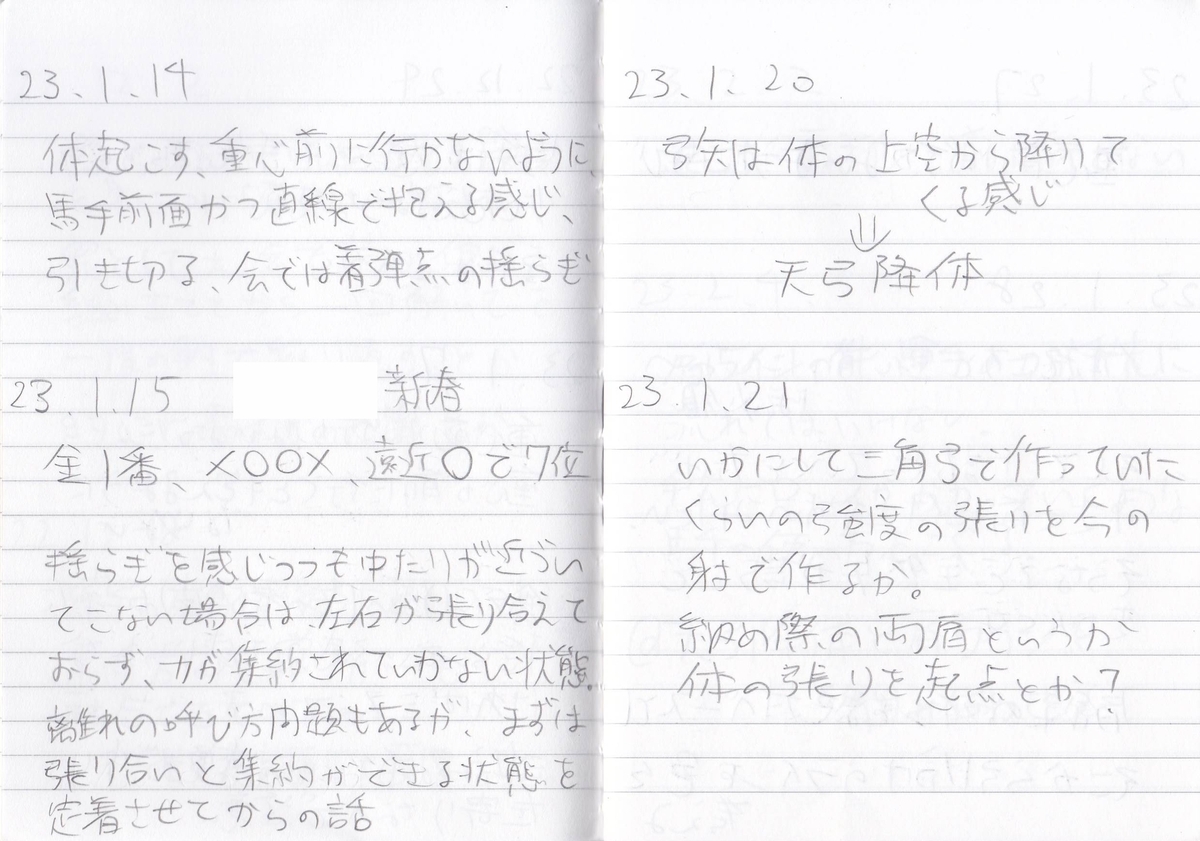 23.1.14
体起こす、重心前に行かないように、
馬手前面かつ直線で抱える感じ、
引き切る、会では着弾点の揺らぎ
23.1.15 新春
全1番、×○○×、遠近○で7位
揺らぎを感じつつも中たりが近づい
てこない場合は、左右が張り合えて
おらず、力が集約されていかない状態。
離れの呼び方問題もあるが、まずは
張り合いと集約ができる状態を
定着させてからの話
23.1.20
弓矢は体の上空から降りて
くる感じ
⇓
天弓降体
23.1.21
いかにして三角弓で作っていた
くらいの強度の張りを今の
射で作るか。
納め際の両肩というか
体の張りを起点とか?